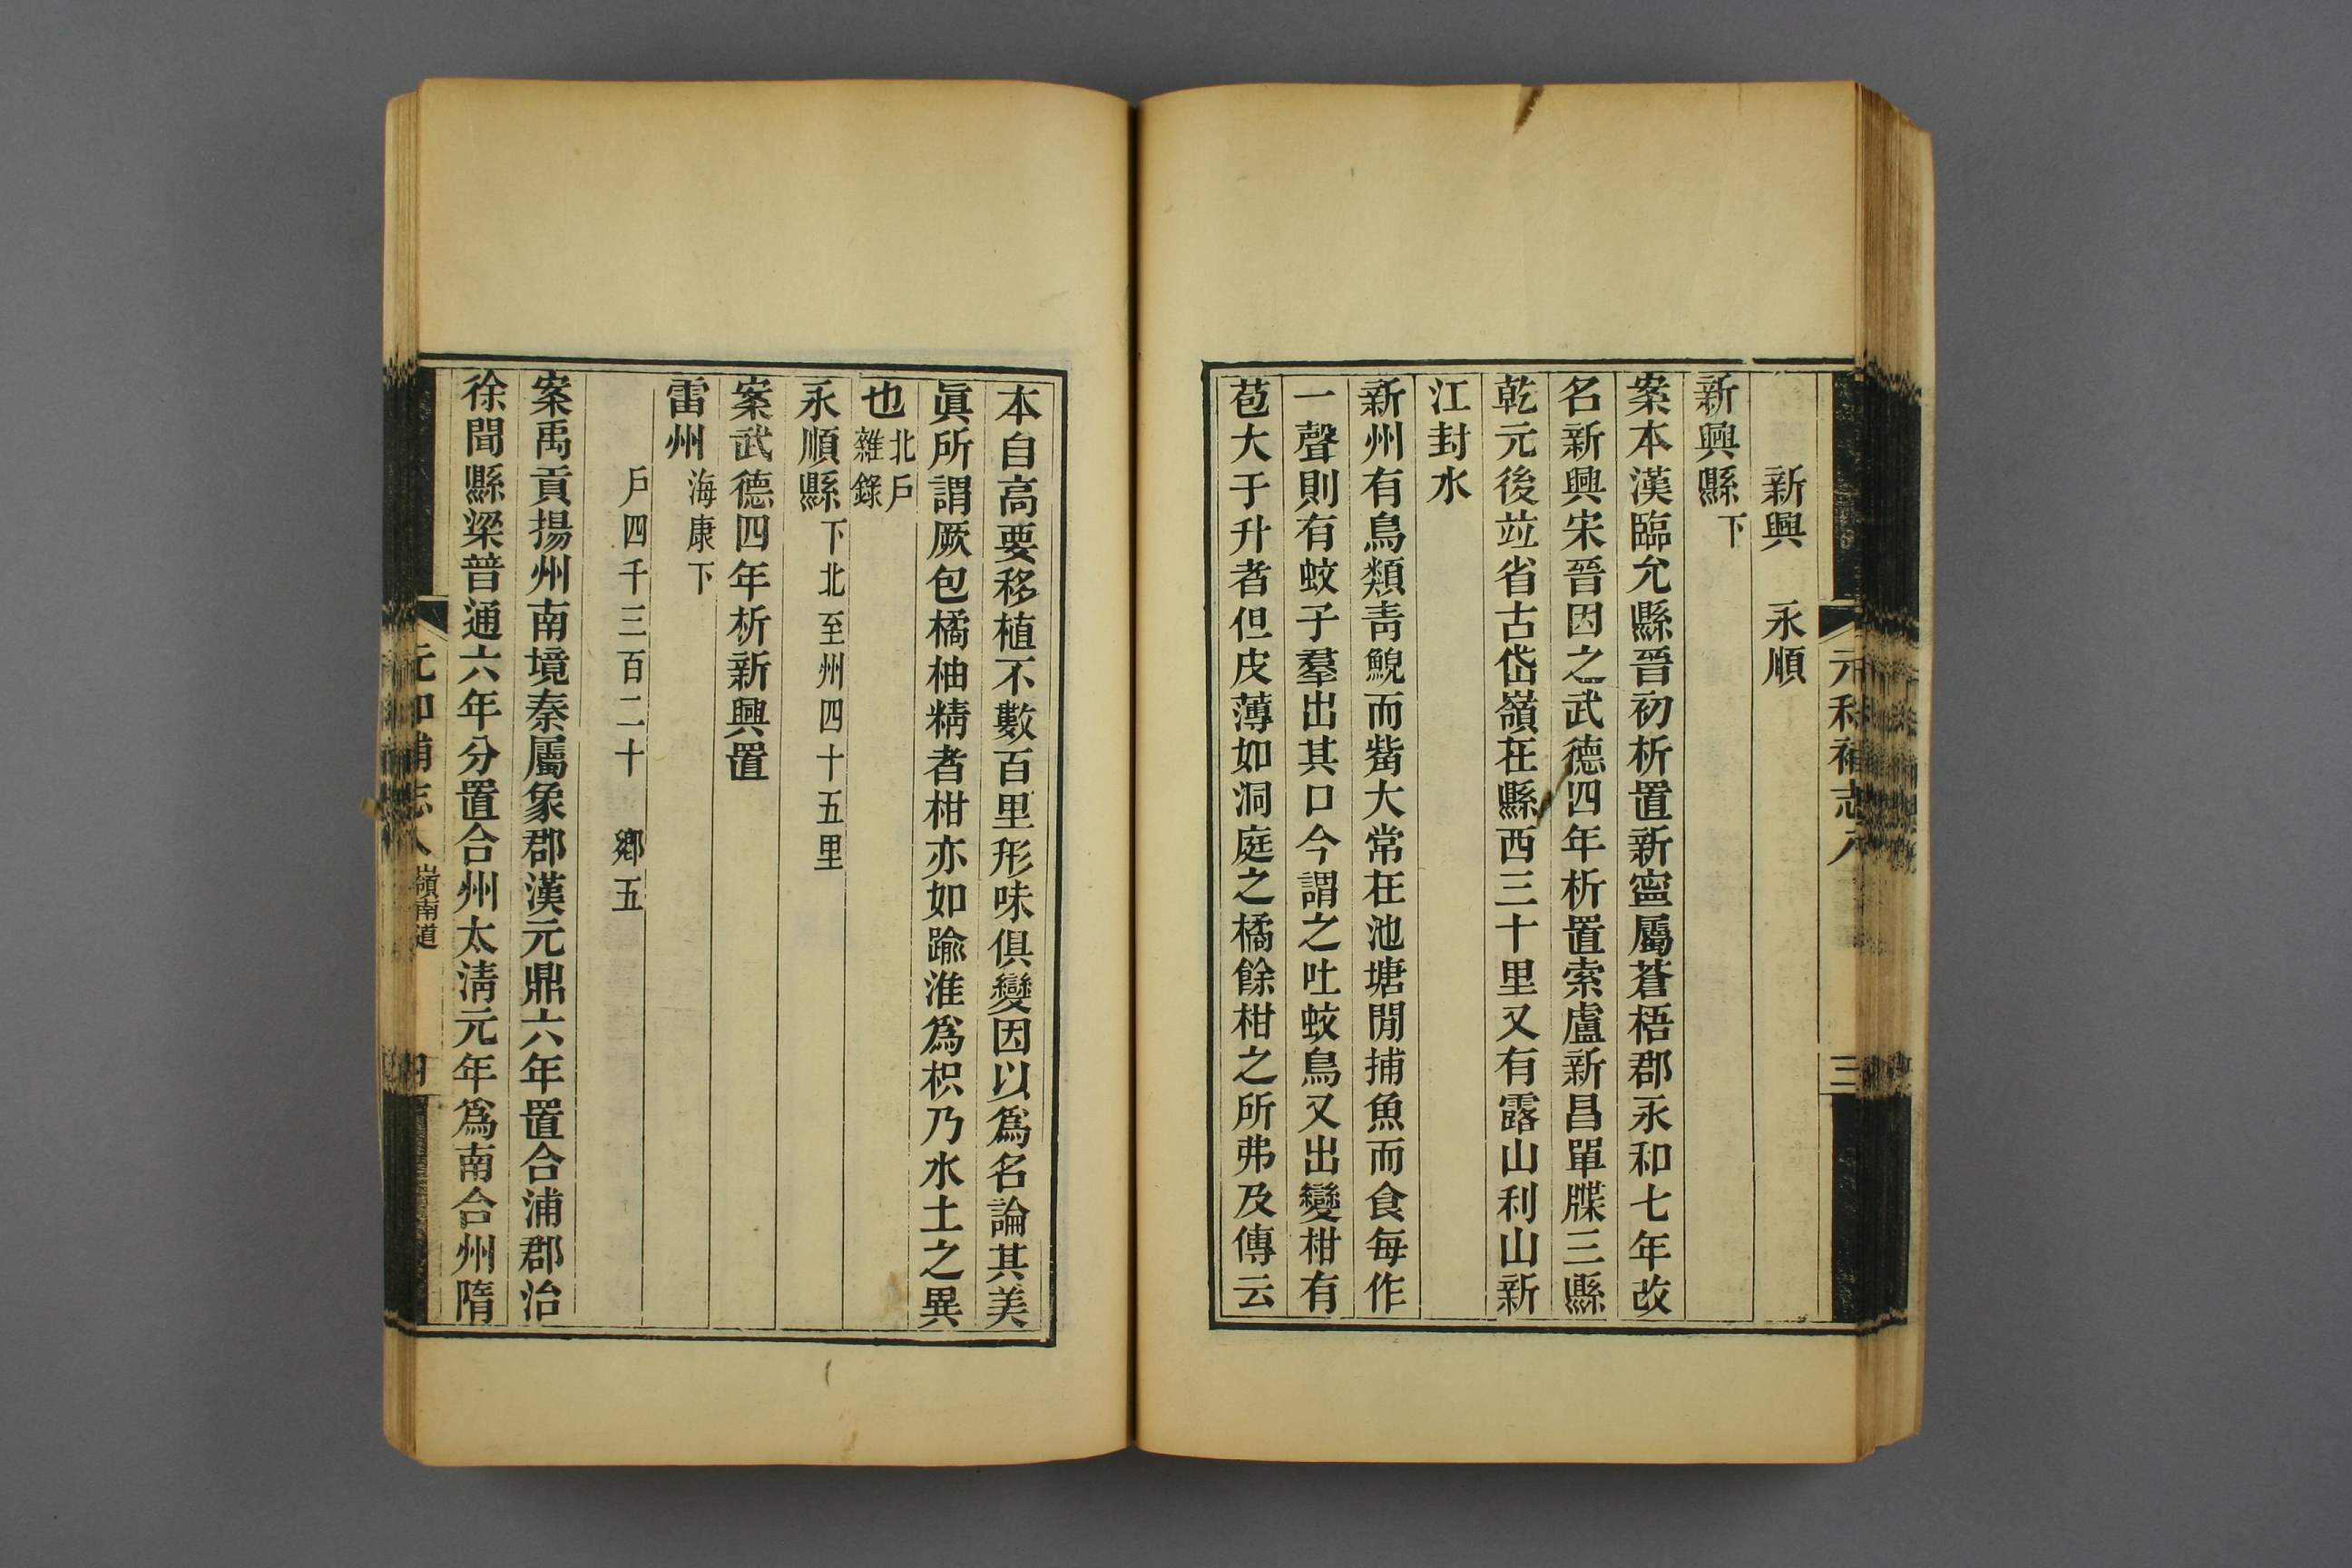 元和補志八
三
新興　永順
新興縣下
案本漢臨允縣晉初析置新寍屬蒼梧郡永和七年改
名新興宋晉因之武德四年析置索盧新昌單牒三縣
乾元後竝省古岱嶺在縣西三十里又有露山利山新
江封水
新州有鳥類靑鶃而觜大常在池塘閒捕魚而食每作
一聲則有蚊子羣出其口今謂之吐蚊鳥又出變柑有
苞大于升者但皮薄如洞庭之橘餘柑之所弗及傳云
本自高要移植不數百里形味俱變因以爲名論其美
眞所謂厥包橘柚精者柑亦如踰淮爲枳乃水土之異
也北戶雜錄
永順縣下北至州四十五里
案武德四年析新興置
雷州海康下
戶四千三百二十　鄉五
案禹貢揚州南境秦屬象郡漢元鼎六年置合浦郡治
徐聞縣梁普通六年分置合州太淸元年爲南合州隋
元和補志八　嶺南道
四